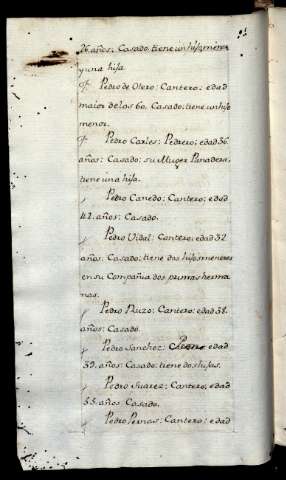 26. años: Casado, tiene un hijo menor
y una hija
Pedro de Otero: Cantero: edad
maior de los 60. Casado: tiene un hijo
menor.
Pedro Carles: Pedrero: edad 36.
años: Casado: su Muger Panadera,
tiene una hija.
Pedro Canedo: Cantero: edad
42. años: Casado.
Pedro Vidal: Cantero: edad 32
años: Casado: tiene dos hijos menores
en su Compañia dos primas herma
nas.
Pedro: Cantero: edad 38.
años: Casado.
Pedro Sanchez: edad
39. años: Casado: tiene dos hijas.
Pedro Suarez: Cantero: edad
33. años Casado.
Pedro Pernas: Cantero: edad